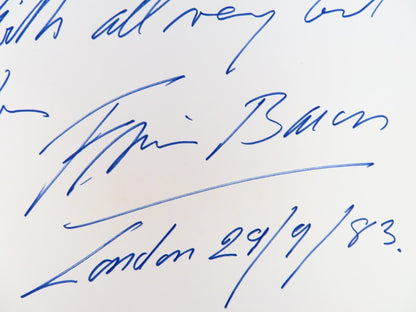 with all very best
Francis Bacon
London 29/9/83.